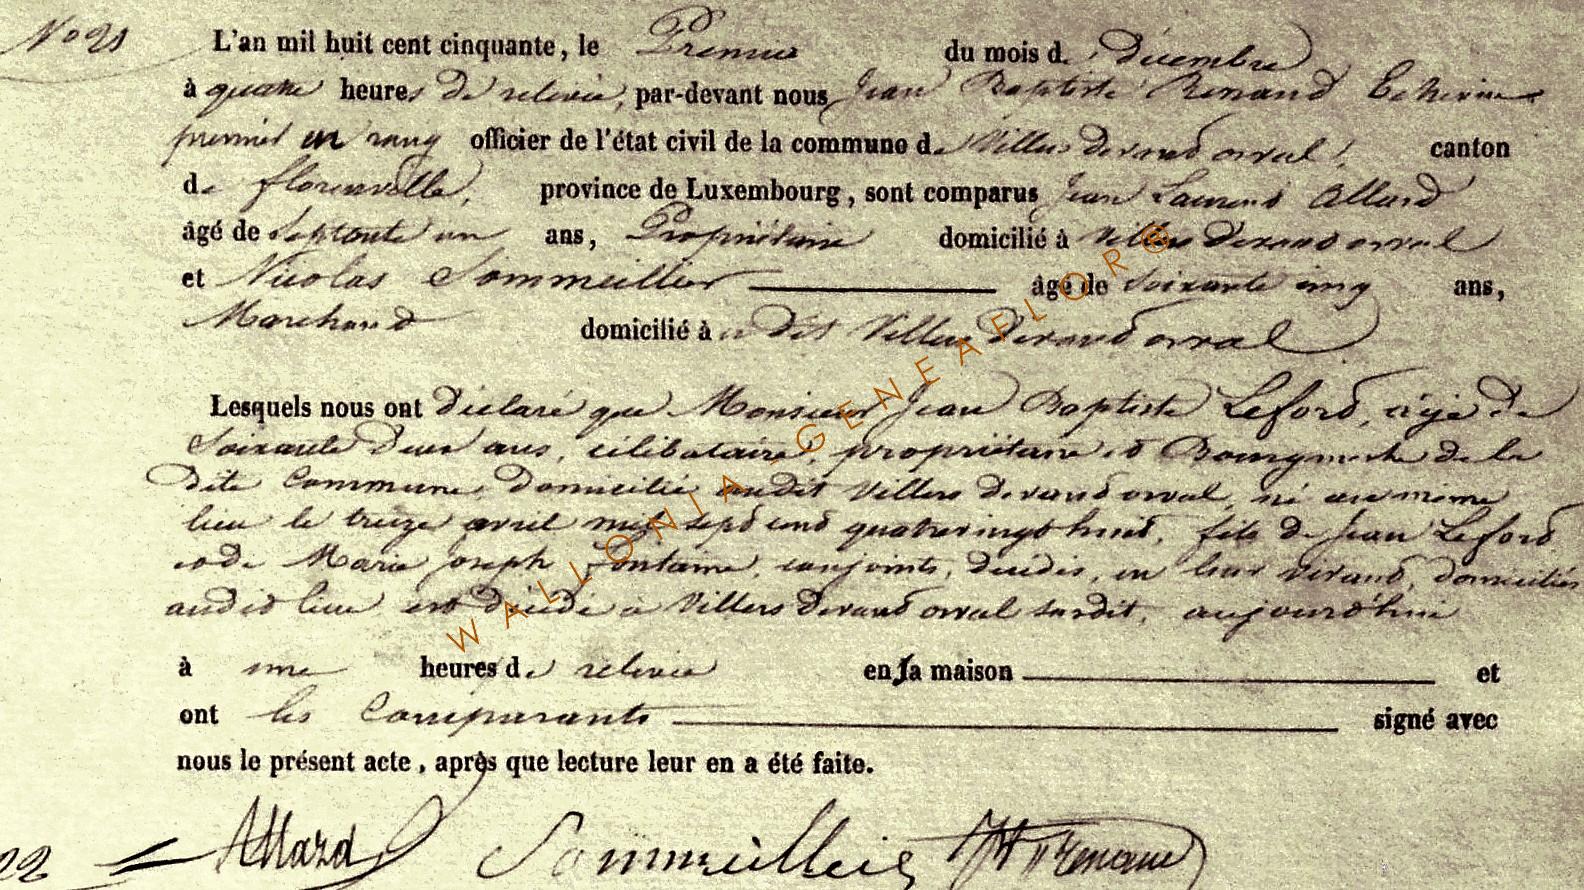 N° 21
L'an mil huit cent cinquante, le Premier du mois de décembre
à quatre heures de relevée, par-devant nous Jean Baptiste Renaud Echevin
premier en rang officier de l'état civil de la commune de Villers devant orval, canton
de florenville, province de Luxembourg, sont comparus Jean Laurent Allard
âgé de septante un ans, Propriétaire domicilié à Villers devant orval
et Nicolas Sommeillier âgé de soixante cinq ans,
Marchand domicilié à u dit Villers devant orval
Lesquels nous ont déclaré que Monsieur Jean Baptiste Leford, âgé de
soixante deux ans, célibataire, propriétaire et Bourgmestre de la
dite Commune, domicilié audit Villers devant orval, né au même
lieu le treize avril mil sept cent quatrevingt huit, fils de Jean Leford
et de Marie joseph fontaine, conjoints, décédés, en leur vivant, domiciliés
audit lieu est décédé à Villers devant orval surdit, aujourd'hui
à une heures de relevée en sa maison et
ont les Comparants signé avec
nous le présent acte, après que lecture leur en a été faite.
Allard Sommeillier JB Renaud
22
WALLONIA GENEAFLOR®